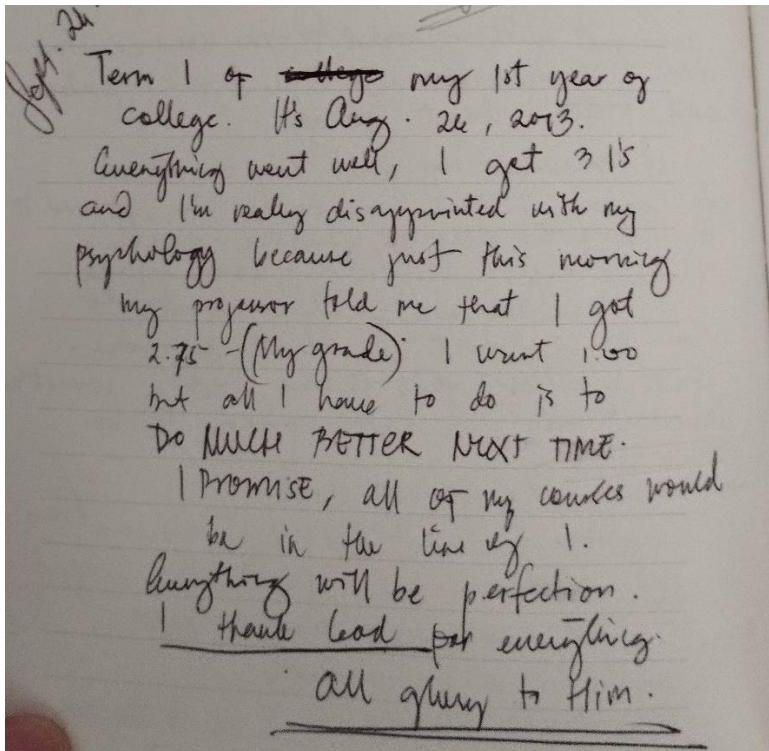 Sept. 24.
Term 1 of college my 1st year of
college. It's Aug. 24, 2013.
Everything went well, I get 3 1's
and I'm really disappointed with my
psychology because just this morning
my professor told me that I got
2.75 - (My grade). I want 1.00
but all I have to do is to
DO MUCH BETTER NEXT TIME.
I PROMISE, all of my courses would
be in the line of 1.
Everything will be perfection.
I thank God for everything.
All glory to Him.